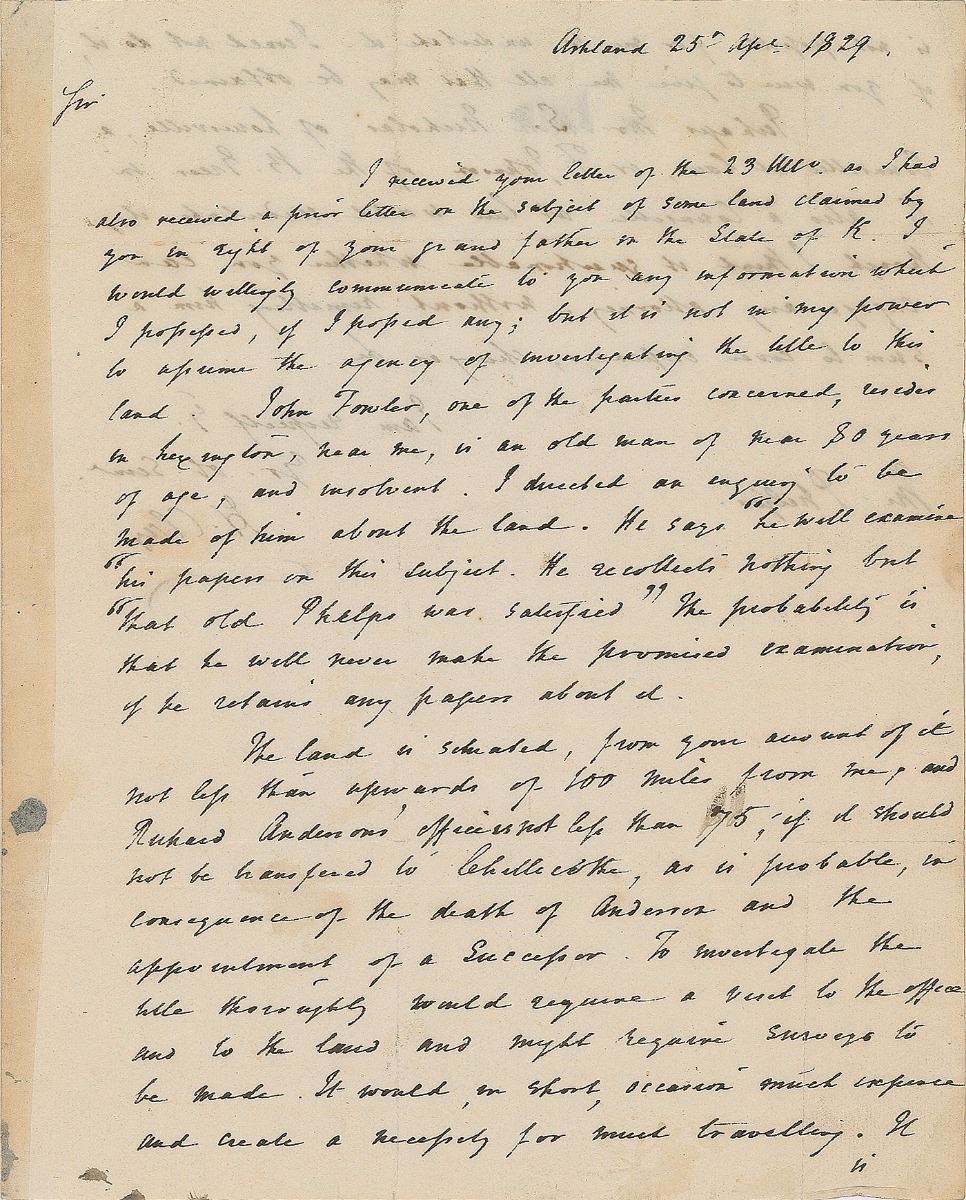 Ashland 25th Apl. 1829.
Sir
I received your letter of the 23 Ulto. as I had
also received a prior letter on the subject of some land claimed by
you in right of your grand father in the State of K. I
would willingly communicate to you any information which
I possessed, if I possed any; but it is not in my power
to assume the agency of investigating the title to this
land. John Fowler, one of the parties concerned, resides
in Lexington, near me, is an old man of near 80 years
of age, and insolvent. I directed an enquiry to be
made of him about the land. He says "he will examine
"his papers on this subject. He recollects nothing but
"that old Phelps was satisfied" The probability is
that he will never make the promised examination,
if he retains any papers about it.
The land is situated, from your account of it
not less than upwards of 100 miles from me, and
Richard Andersons' office is not less than 75, if it should
not be transfered to Chillecothe, as is probable, in
consequence of the death of Anderson and the
appointment of a Successor. To investigate the
title thoroughly would require a visit to the office
and to the land and might require surveys to
be made. It would, in short, occasion much expence
and create a necessity for much travelling. It
is